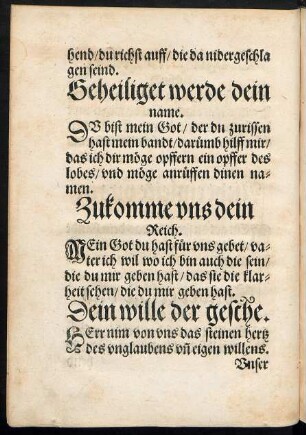 hend/du richst auff/die da nidergeschla
gen seind.
Geheiliget werde dein
name.
DV bist mein Got/der du zurissen
hast mein bandt/darumb hilff mir/
das ich dir möge opffern ein opffer des
lobes/vnd möge anrüffen dinen na-
men.
Zukomme vns dein
Reich.
MEin Got du hast für vns gebet/va-
ter ich wil wo ich bin auch die sein/
die du mir geben hast/das sie die klar-
heit sehen/die du mir geben hast.
Dein wille der gesche.
HErr nim von vns das steinen hertz
des vnglaubens vñ eigen willens.
Vnser